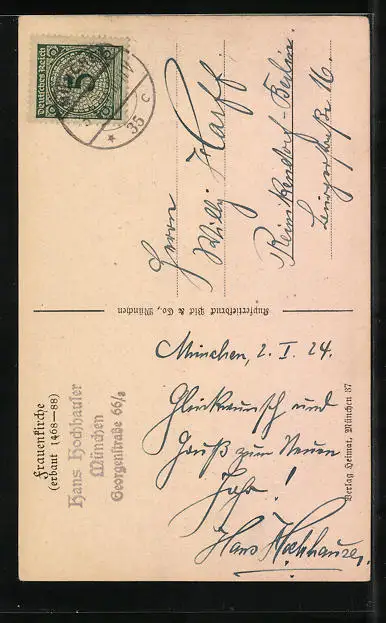 Frauenkirche
(erbaut 1468—88)
Hans Hochhauser
München
Georgenstraße 66/2
München, 2. I. 24.
Glückwunsch und
Gruß zum Neuen
Jahr!
Hans Hochhauser
Verlag Heimat, München 37
Kupfertiefdruck Bid & Co., München
Deutsches Reich
5
35
c
Herrn
Willy Harff
Reinikendorf-Berlin
16.